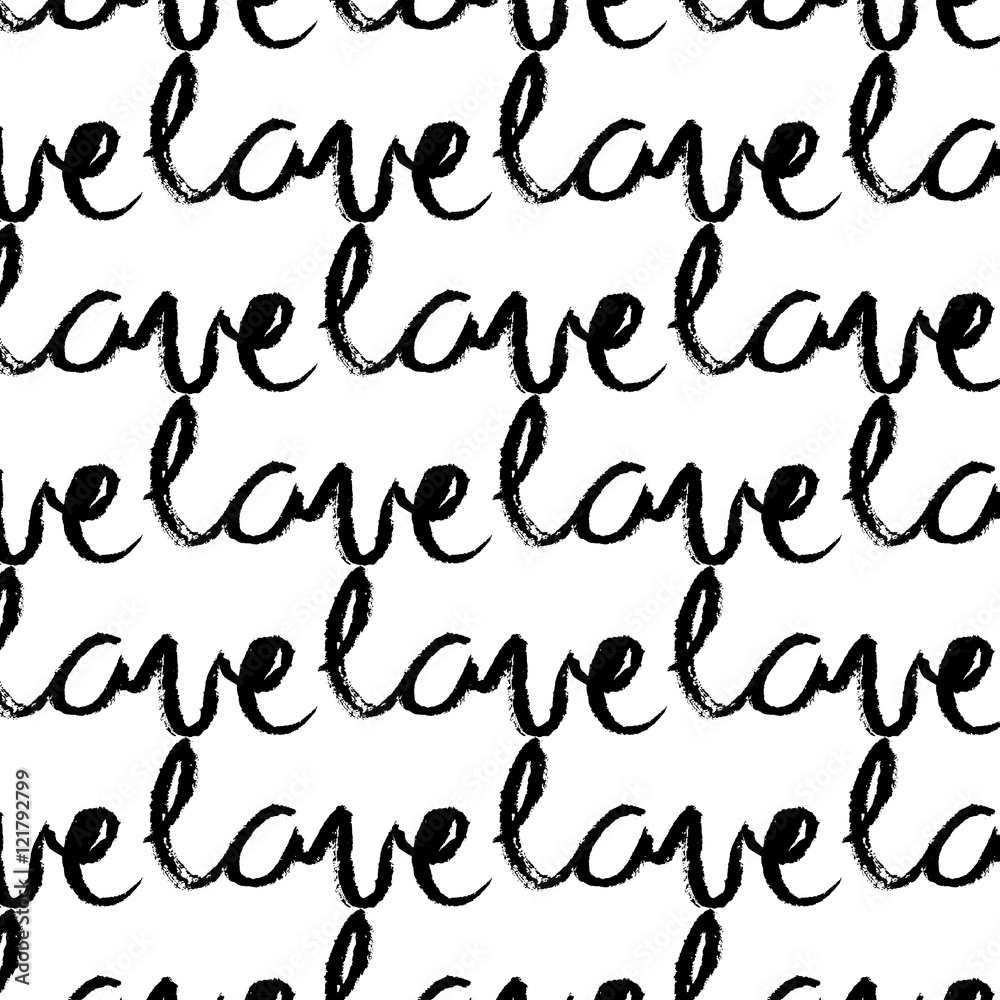 love love love
ve love love lo
love love love
ve love love lo
love love love
ve love love lo
love love love
Adobe Stock | #121792799